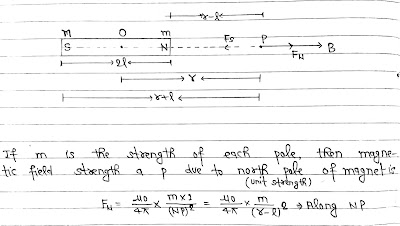 r-l
m O m
S N Fs P FN B
2l
r
r+l
If m is the strength of each pole, then magne-
tic field strength a p due to north pole of magnet is
(unit strength)
FN = μ0/4π × m×1/(NP)² = μ0/4π × m/(r-l)² → Along NP